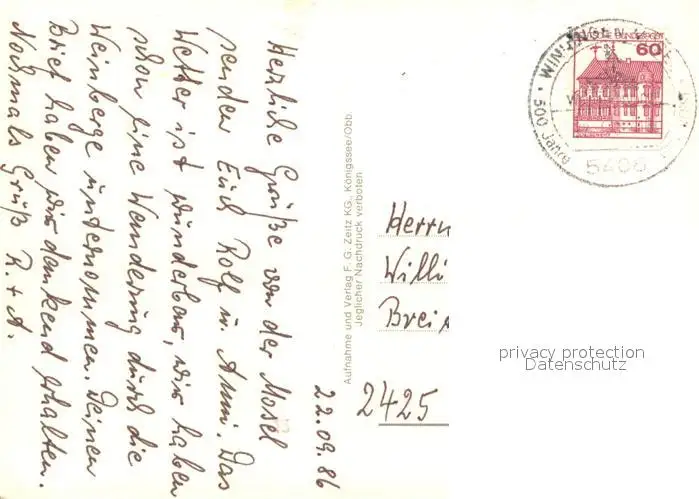 Herzliche Grüße von der Mosel
senden Euch Rolf u. Anni. Das
Wetter ist wunderbar, wir haben
schon eine Wanderung durch die
Weinberge unternommen. Deinen
Brief haben wir dankend erhalten.
Nochmals Gruß R. + A.
22.09.86
Aufnahme und Verlag F. G. Zeitz KG., Königssee/Obb.
Jeglicher Nachdruck verboten
60
500 Jahre
5406
Herrn
Willi
2425
privacy protection
Datenschutz